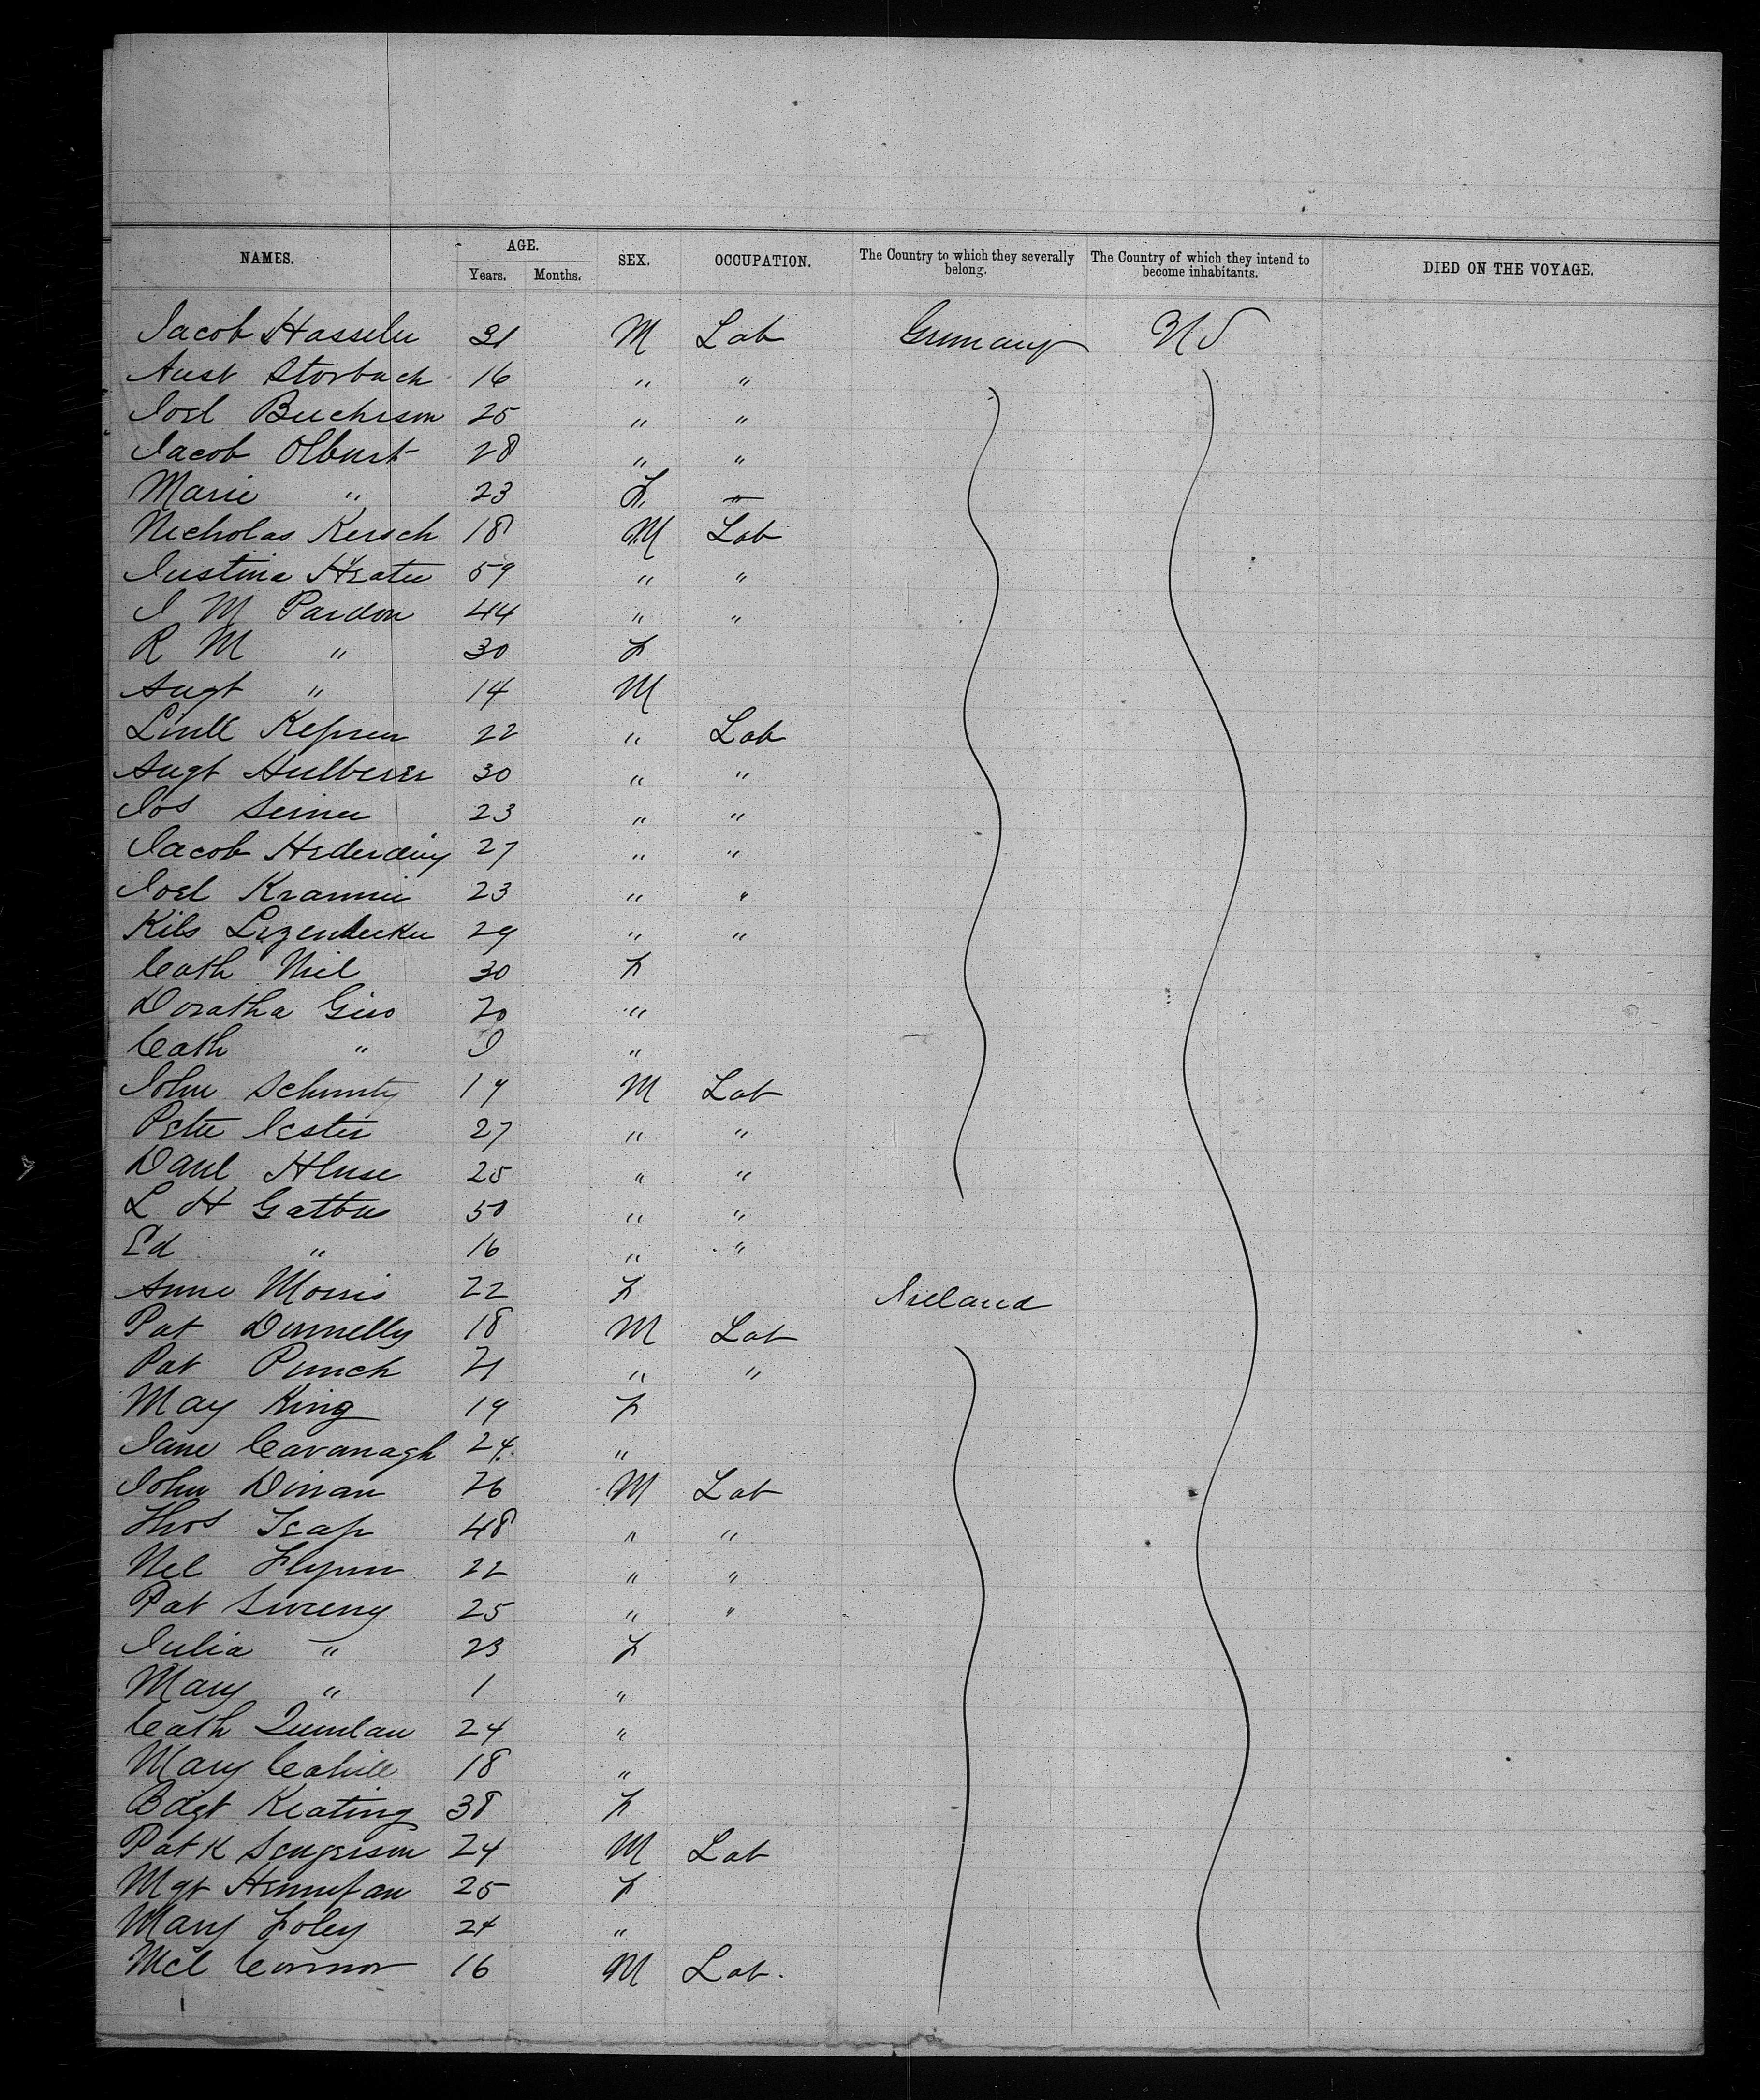 NAMES. AGE. SEX. OCCUPATION. The Country to which they severally belong. The Country of which they intend to become inhabitants. DIED ON THE VOYAGE.
Years. Months.
Jacob Hasseler 31 M Lab Germany US
Aust Storbach 16 " "
Joel Buchison 25 " "
Jacob Olburt 28 " "
Marie " 23 F "
Nicholas Kersch 18 M Lab
Justina 59 " "
J M Pardon 44 " "
R M " 30 F
Augt " 14 M
22 " Lab
Augt Hulberer 30 " "
Jos 23 " "
Jacob Hederding 27 " "
Joel 23 " "
29 " "
Cath Niel 30 F
Doratha 20 "
Cath " 9 "
John Schmitz 19 M Lab
Peter Cester 27 " "
Danl 25 " "
L H 50 " "
Ed " 16 " "
Anne Morris 22 F Ireland
Pat Donnelly 18 M Lab
Pat Punch 21 " "
May King 19 F
Jane Cavanagh 24 "
John Dinan 26 M Lab
Thos 48 " "
Flynn 22 " "
Pat Sweeny 25 " "
Julia " 23 F
Mary " 1 "
Cath Quinlan 24 "
Mary Cahill 18 "
Bdgt Keating 38 F
Patk Sengerson 24 M Lab
Mgt 25 F
Mary Foley 24 "
Mcl Connor 16 M Lab.